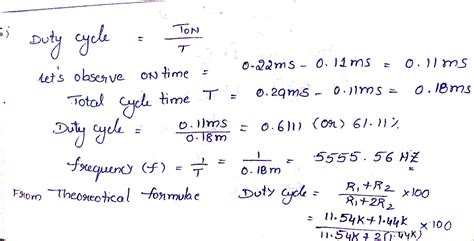 5) Duty cycle = TON / T
Let's observe ON time = 0.22ms - 0.11ms = 0.11ms
Total cycle time T = 0.29ms - 0.11ms = 0.18ms
Duty cycle = 0.11ms / 0.18m = 0.6111 (or) 61.11%
frequency (f) = 1/T = 1 / 0.18m = 5555.56 HZ
From Theoreotical formulae Duty cycle = R1+R2 / R1+2R2 ×100
= 11.54K+1.44K / 11.54K+2(1.44K) ×100